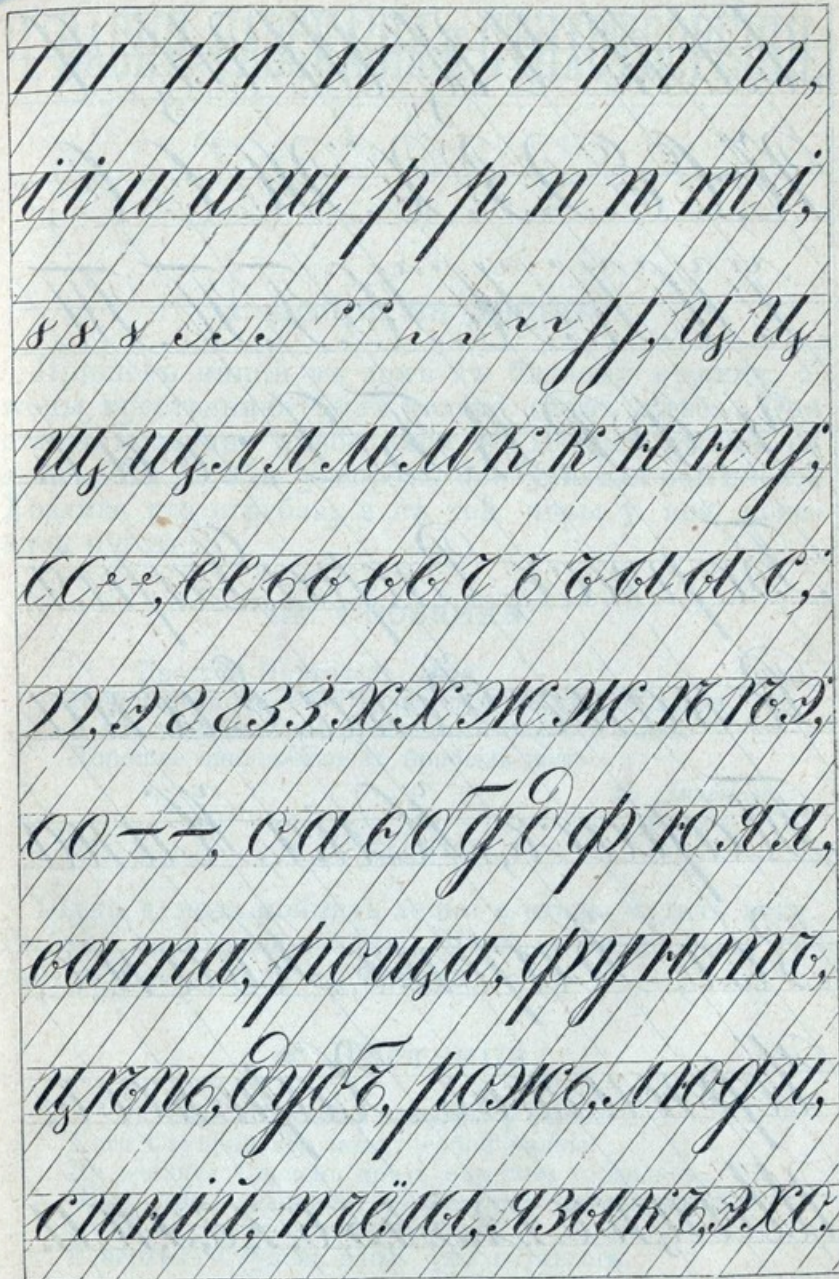 і і и и ш р р п п т і,
ц ц
щ щ л л м м к к н н у,
с с е е ь ь в в ч ъ ъ ы ы с,
э г г з з х х ж ж ѣ ѣ э,
о о о а е б у д ф ю я я,
вата, роща, фунтъ,
цѣпь, дубъ, рожь, люди,
синій, пчёлы, языкъ, эхо.